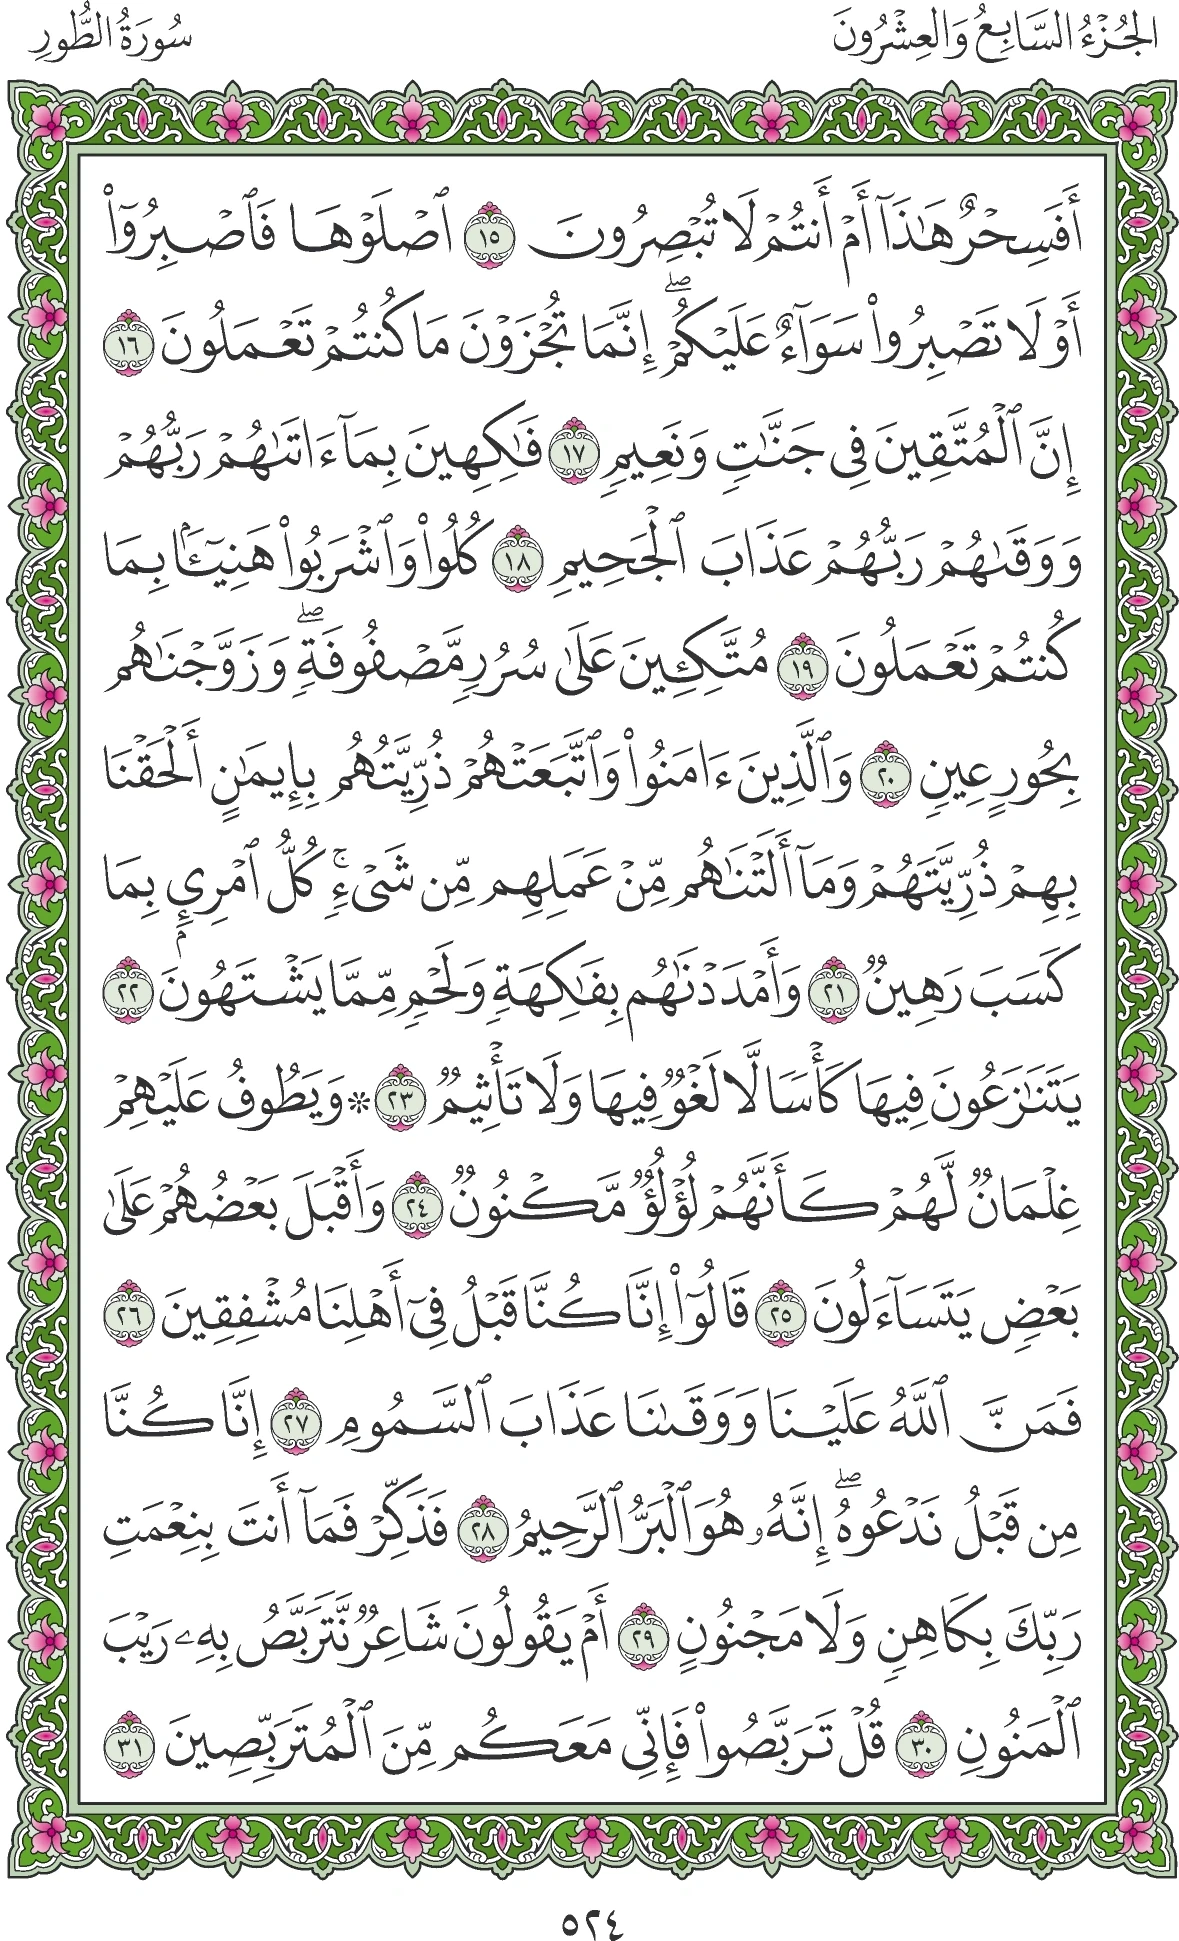 الجُزْءُ السَّابِعُ وَالعِشْرُونَ
سُورَةُ الطُّورِ
أَفَسِحْرٌ هَٰذَآ أَمْ أَنتُمْ لَا تُبْصِرُونَ ١٥ ٱصْلَوْهَا فَٱصْبِرُوٓاْ
أَوْ لَا تَصْبِرُواْ سَوَآءٌ عَلَيْكُمْۖ إِنَّمَا تُجْزَوْنَ مَا كُنتُمْ تَعْمَلُونَ ١٦
إِنَّ ٱلْمُتَّقِينَ فِي جَنَّٰتٖ وَنَعِيمٖ ١٧ فَٰكِهِينَ بِمَآ ءَاتَىٰهُمْ رَبُّهُمْ
وَوَقَىٰهُمْ رَبُّهُمْ عَذَابَ ٱلْجَحِيمِ ١٨ كُلُواْ وَٱشْرَبُواْ هَنِيٓـَٔۢا بِمَا
كُنتُمْ تَعْمَلُونَ ١٩ مُتَّكِـِٔينَ عَلَىٰ سُرُرٖ مَّصْفُوفَةٖۖ وَزَوَّجْنَٰهُم
بِحُورٍ عِينٖ ٢٠ وَٱلَّذِينَ ءَامَنُواْ وَٱتَّبَعَتْهُمْ ذُرِّيَّتُهُم بِإِيمَٰنٍ أَلْحَقْنَا
بِهِمْ ذُرِّيَّتَهُمْ وَمَآ أَلَتْنَٰهُم مِّنْ عَمَلِهِم مِّن شَيْءٖۚ كُلُّ ٱمْرِيِٕۭ بِمَا
كَسَبَ رَهِينٞ ٢١ وَأَمْدَدْنَٰهُم بِفَٰكِهَةٖ وَلَحْمٖ مِّمَّا يَشْتَهُونَ ٢٢
يَتَنَٰزَعُونَ فِيهَا كَأْسٗا لَّا لَغْوٞ فِيهَا وَلَا تَأْثِيمٞ ٢٣ ۞ وَيَطُوفُ عَلَيْهِمْ
غِلْمَانٞ لَّهُمْ كَأَنَّهُمْ لُؤْلُؤٞ مَّكْنُونٞ ٢٤ وَأَقْبَلَ بَعْضُهُمْ عَلَىٰ
بَعْضٖ يَتَسَآءَلُونَ ٢٥ قَالُوٓاْ إِنَّا كُنَّا قَبْلُ فِيٓ أَهْلِنَا مُشْفِقِينَ ٢٦
فَمَنَّ ٱللَّهُ عَلَيْنَا وَوَقَىٰنَا عَذَابَ ٱلسَّمُومِ ٢٧ إِنَّا كُنَّا
مِن قَبْلُ نَدْعُوهُۖ إِنَّهُۥ هُوَ ٱلْبَرُّ ٱلرَّحِيمُ ٢٨ فَذَكِّرْ فَمَآ أَنتَ بِنِعْمَتِ
رَبِّكَ بِكَاهِنٖ وَلَا مَجْنُونٍ ٢٩ أَمْ يَقُولُونَ شَاعِرٞ نَّتَرَبَّصُ بِهِۦ رَيْبَ
ٱلْمَنُونِ ٣٠ قُلْ تَرَبَّصُواْ فَإِنِّي مَعَكُم مِّنَ ٱلْمُتَرَبِّصِينَ ٣١
٥٢٤